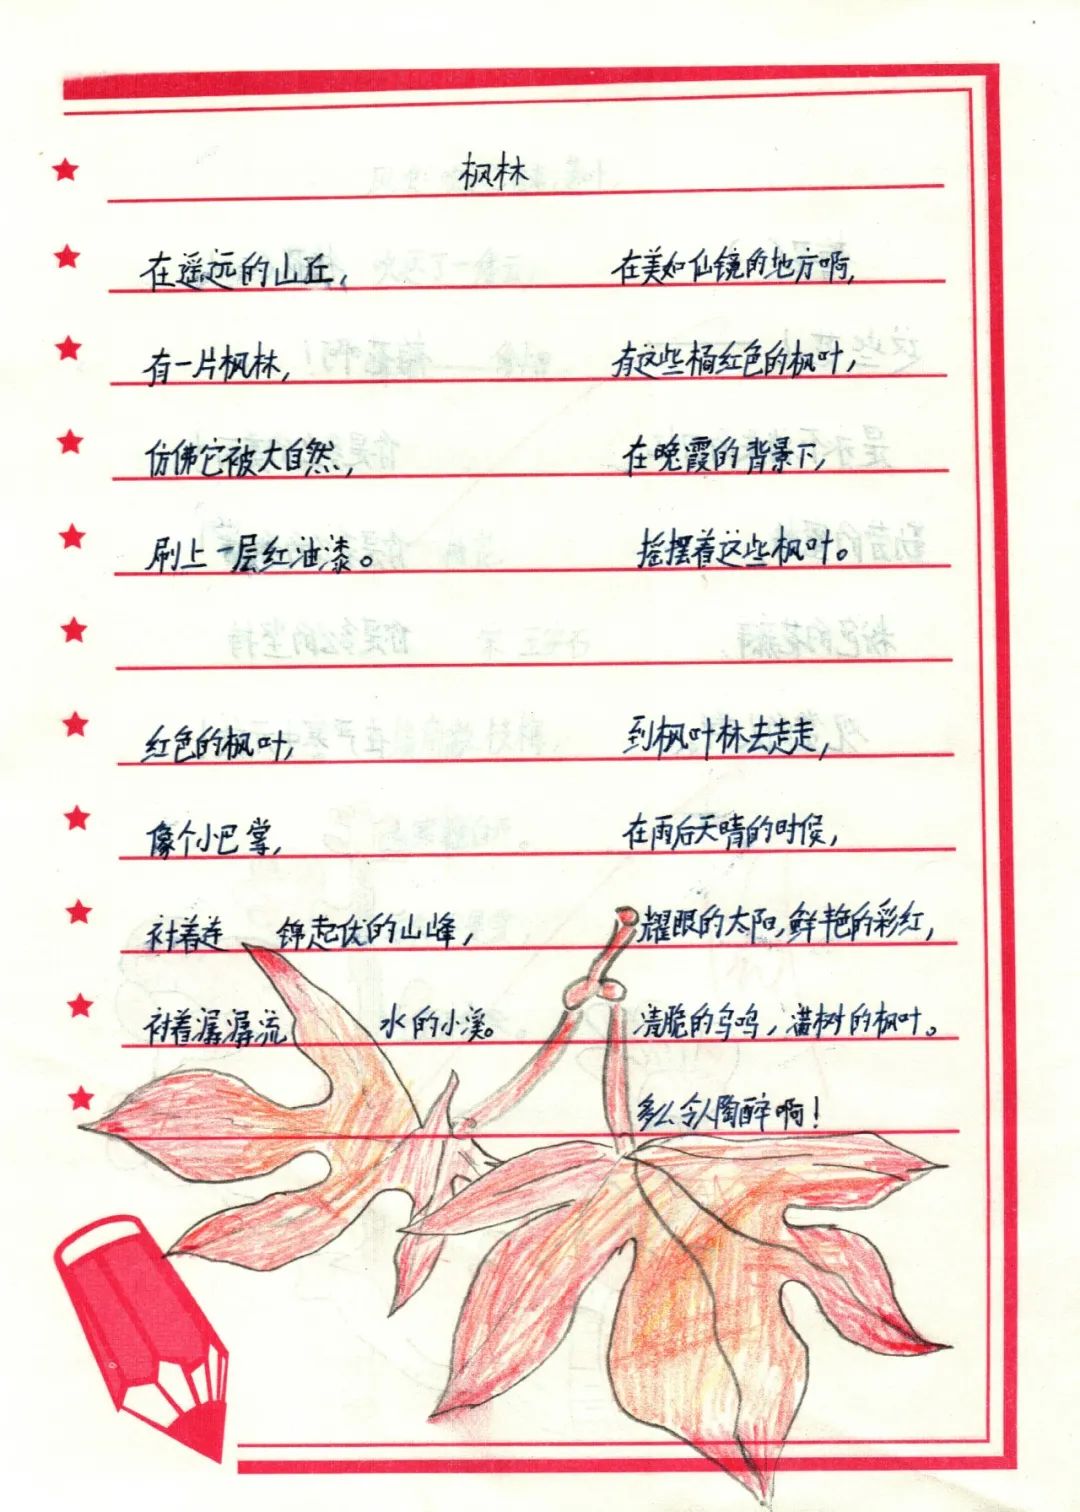 枫林
在遥远的山丘,
有一片枫林,
仿佛它被大自然,
刷上一层红油漆。
红色的枫叶,
像个小巴掌,
衬着连绵起伏的山峰,
衬着潺潺流水的小溪。
在美如仙镜的地方啊,
有这些橘红色的枫叶,
在晚霞的背景下,
摇摆着这些枫叶。
到枫叶林去走走,
在雨后天晴的时候,
耀眼的太阳,鲜艳的彩红,
清脆的鸟鸣,满树的枫叶。
多么令人陶醉啊!